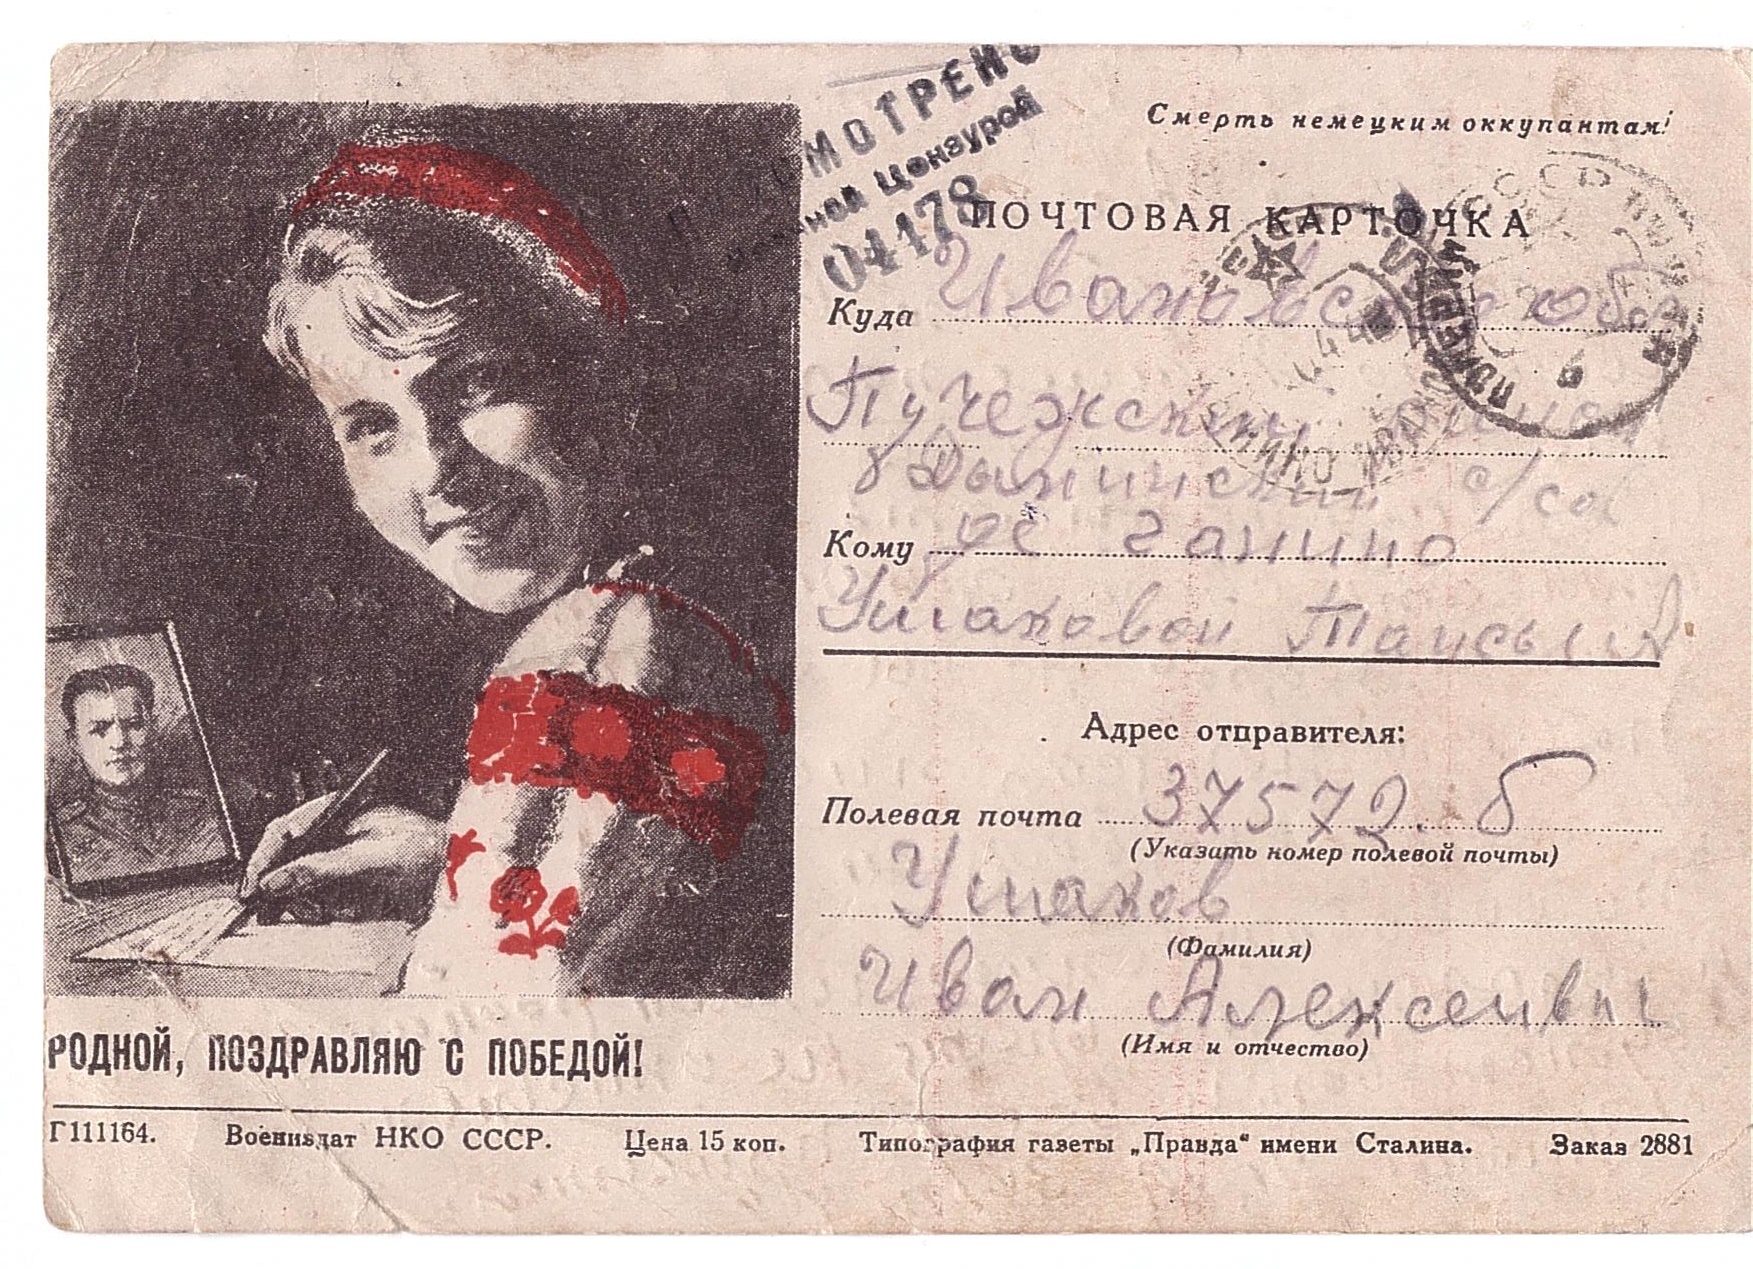 Смерть немецким оккупантам!
МОТРЕНО
цензурой
04178
ПОЧТОВАЯ КАРТОЧКА
Куда Ивановск обл
Пучежский
с/сов
Кому Ганино
Ушаковой Таисьи А
Адрес отправителя:
Полевая почта 37572. б
(Указать номер полевой почты)
Ушаков
(Фамилия)
Иван Алексеивич
(Имя и отчество)
РОДНОЙ, ПОЗДРАВЛЯЮ С ПОБЕДОЙ!
Г111164. Воениздат НКО СССР. Цена 15 коп. Типография газеты „Правда“ имени Сталина. Заказ 2881